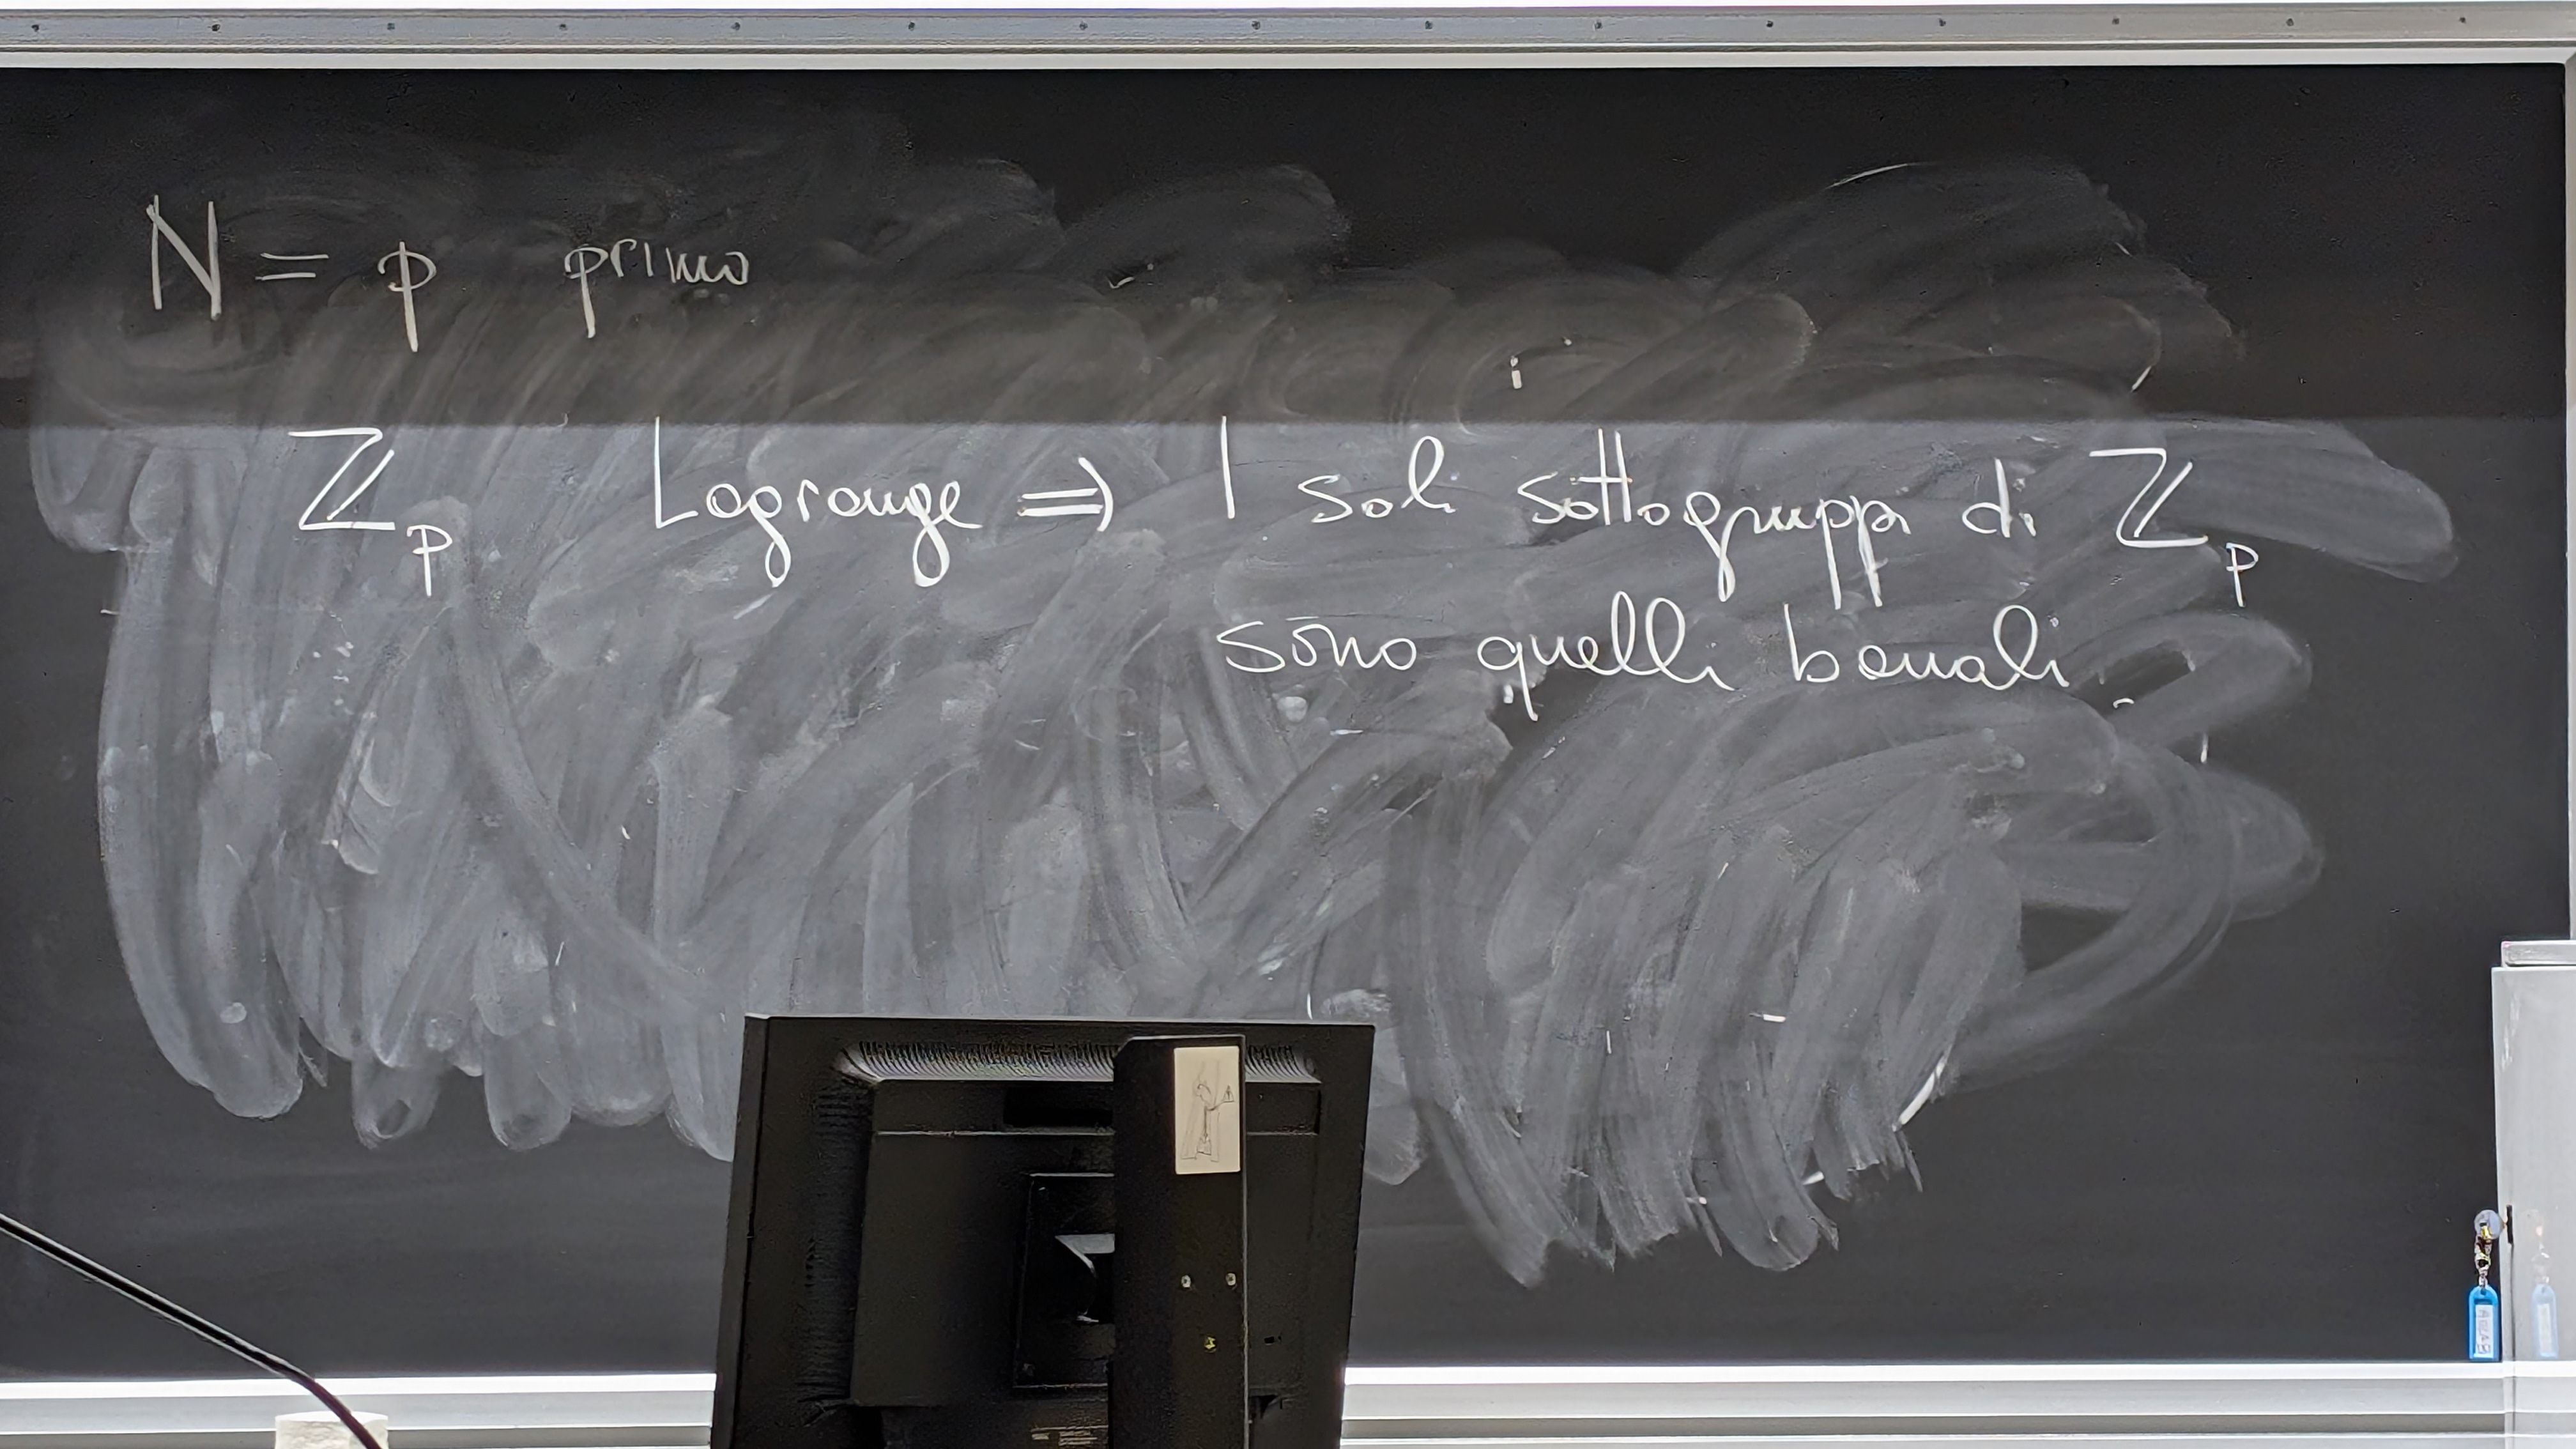 N = p primo
ℤ_p Lagrange ⇒ I soli sottogruppi di ℤ_p
sono quelli banali